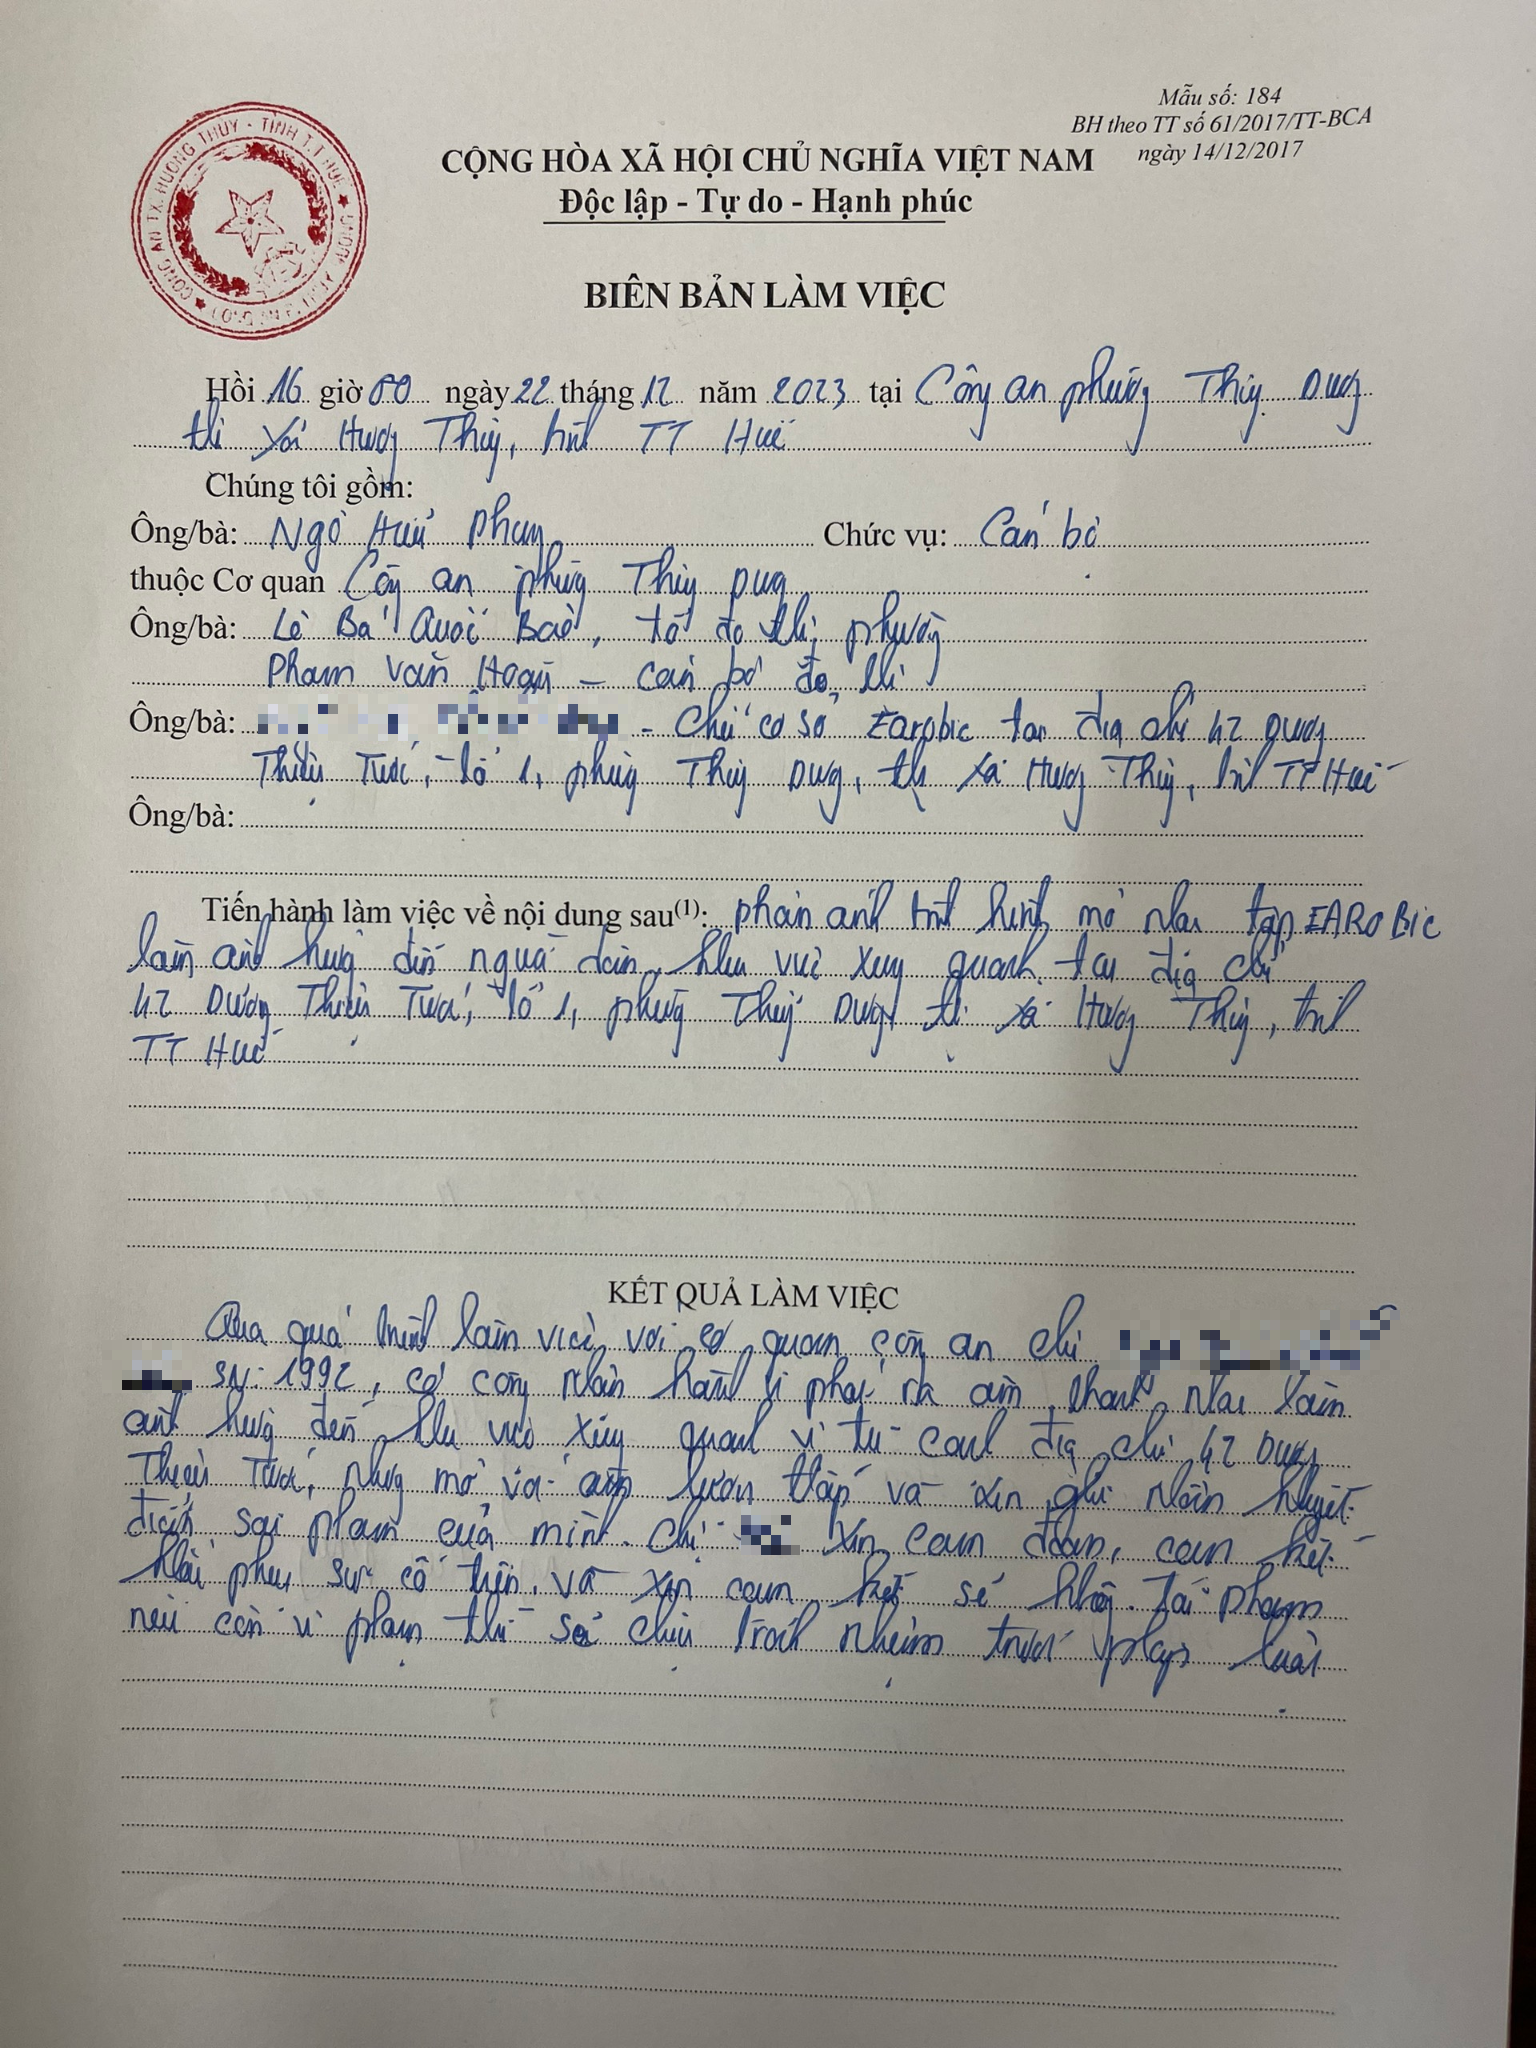 Mẫu số: 184
BH theo TT số 61/2017/TT-BCA
ngày 14/12/2017
CÔNG AN TX.HƯƠNG THỦY - TỈNH T.T HUẾ
CỘNG HÒA XÃ HỘI CHỦ NGHĨA VIỆT NAM
Độc lập - Tự do - Hạnh phúc
BIÊN BẢN LÀM VIỆC
Hồi 16 giờ 00 ngày 22 tháng 12 năm 2023 tại Công an phường Thủy Dương
thị xã Hương Thủy, tỉnh TT Huế
Chúng tôi gồm:
Ông/bà: Ngô Hữu Chức vụ: Cán bộ
thuộc Cơ quan Công an phường Thủy Dương
Ông/bà: Lê Bá Quốc Bảo, tổ đô thị phường
Phạm Văn - cán bộ đô thị
Ông/bà: - Chủ cơ sở Earobic tại địa chỉ 42 Dương
Thiệu Tước, tổ 1, phường Thủy Dương, thị xã Hương Thủy, tỉnh TT Huế
Ông/bà:
Tiến hành làm việc về nội dung sau(1): phản ánh tình hình mở nhạc tập EAROBIC
làm ảnh hưởng đến người dân khu vực xung quanh tại địa chỉ
42 Dương Thiệu Tước, tổ 1, phường Thủy Dương, thị xã Hương Thủy, tỉnh
TT Huế
KẾT QUẢ LÀM VIỆC
Qua quá trình làm việc với cơ quan công an chị
SN: 1992, có công nhận hành vi phát ra âm thanh nhạc làm
ảnh hưởng đến khu vực xung quanh vị trí địa chỉ 42 Dương
Thiệu Tước, nhưng mở với âm lượng thấp và xin ghi nhận khuyết
điểm sai phạm của mình. Chị xin cam đoan, cam kết
khắc phục sự cố trên, và xin cam kết sẽ không tái phạm
nếu còn vi phạm thì sẽ chịu trách nhiệm trước pháp luật